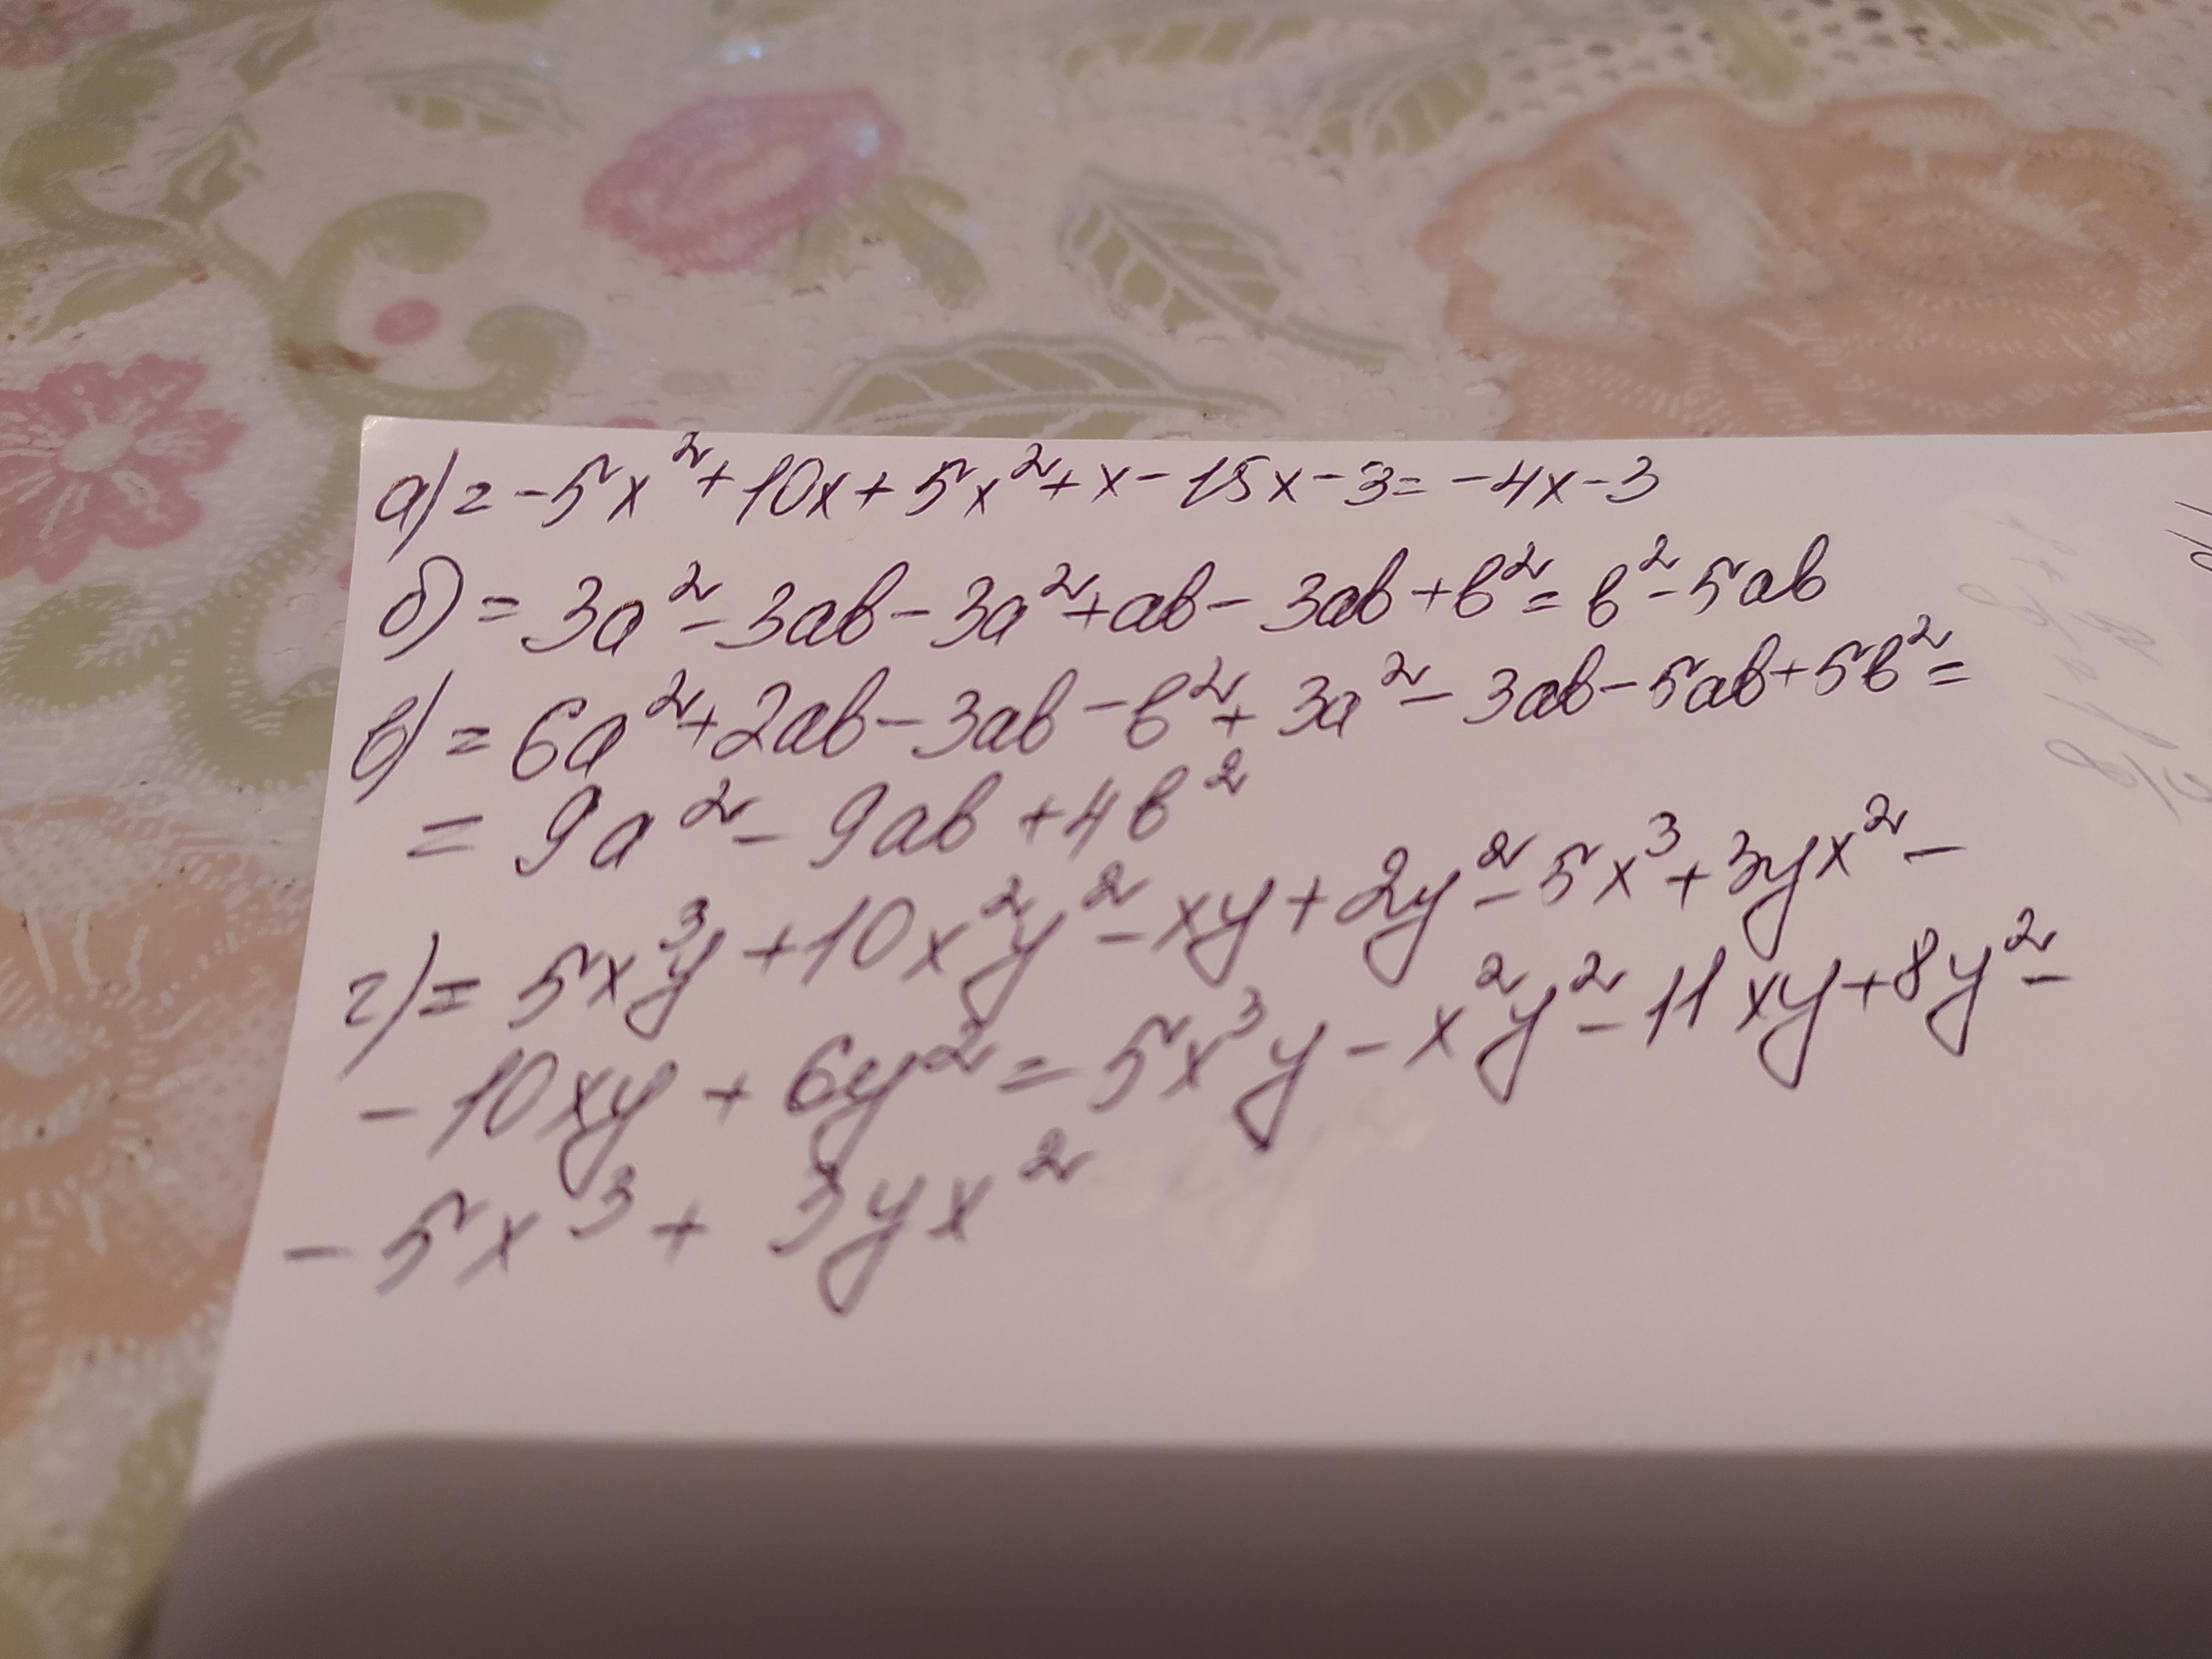 а) = -5x²+10x+5x²+x-15x-3= -4x-3
б) = 3a²-3ab-3a²+ab-3ab+b²= b²-5ab
в) = 6a²+2ab-3ab-b²+3a²-3ab-5ab+5b²=
= 9a²-9ab+4b²
г) = 5x³y+10x²y²-xy+2y²-5x³+3yx²-
-10xy+6y²=5x³y-x²y²-11xy+8y²-
-5x³+3yx²